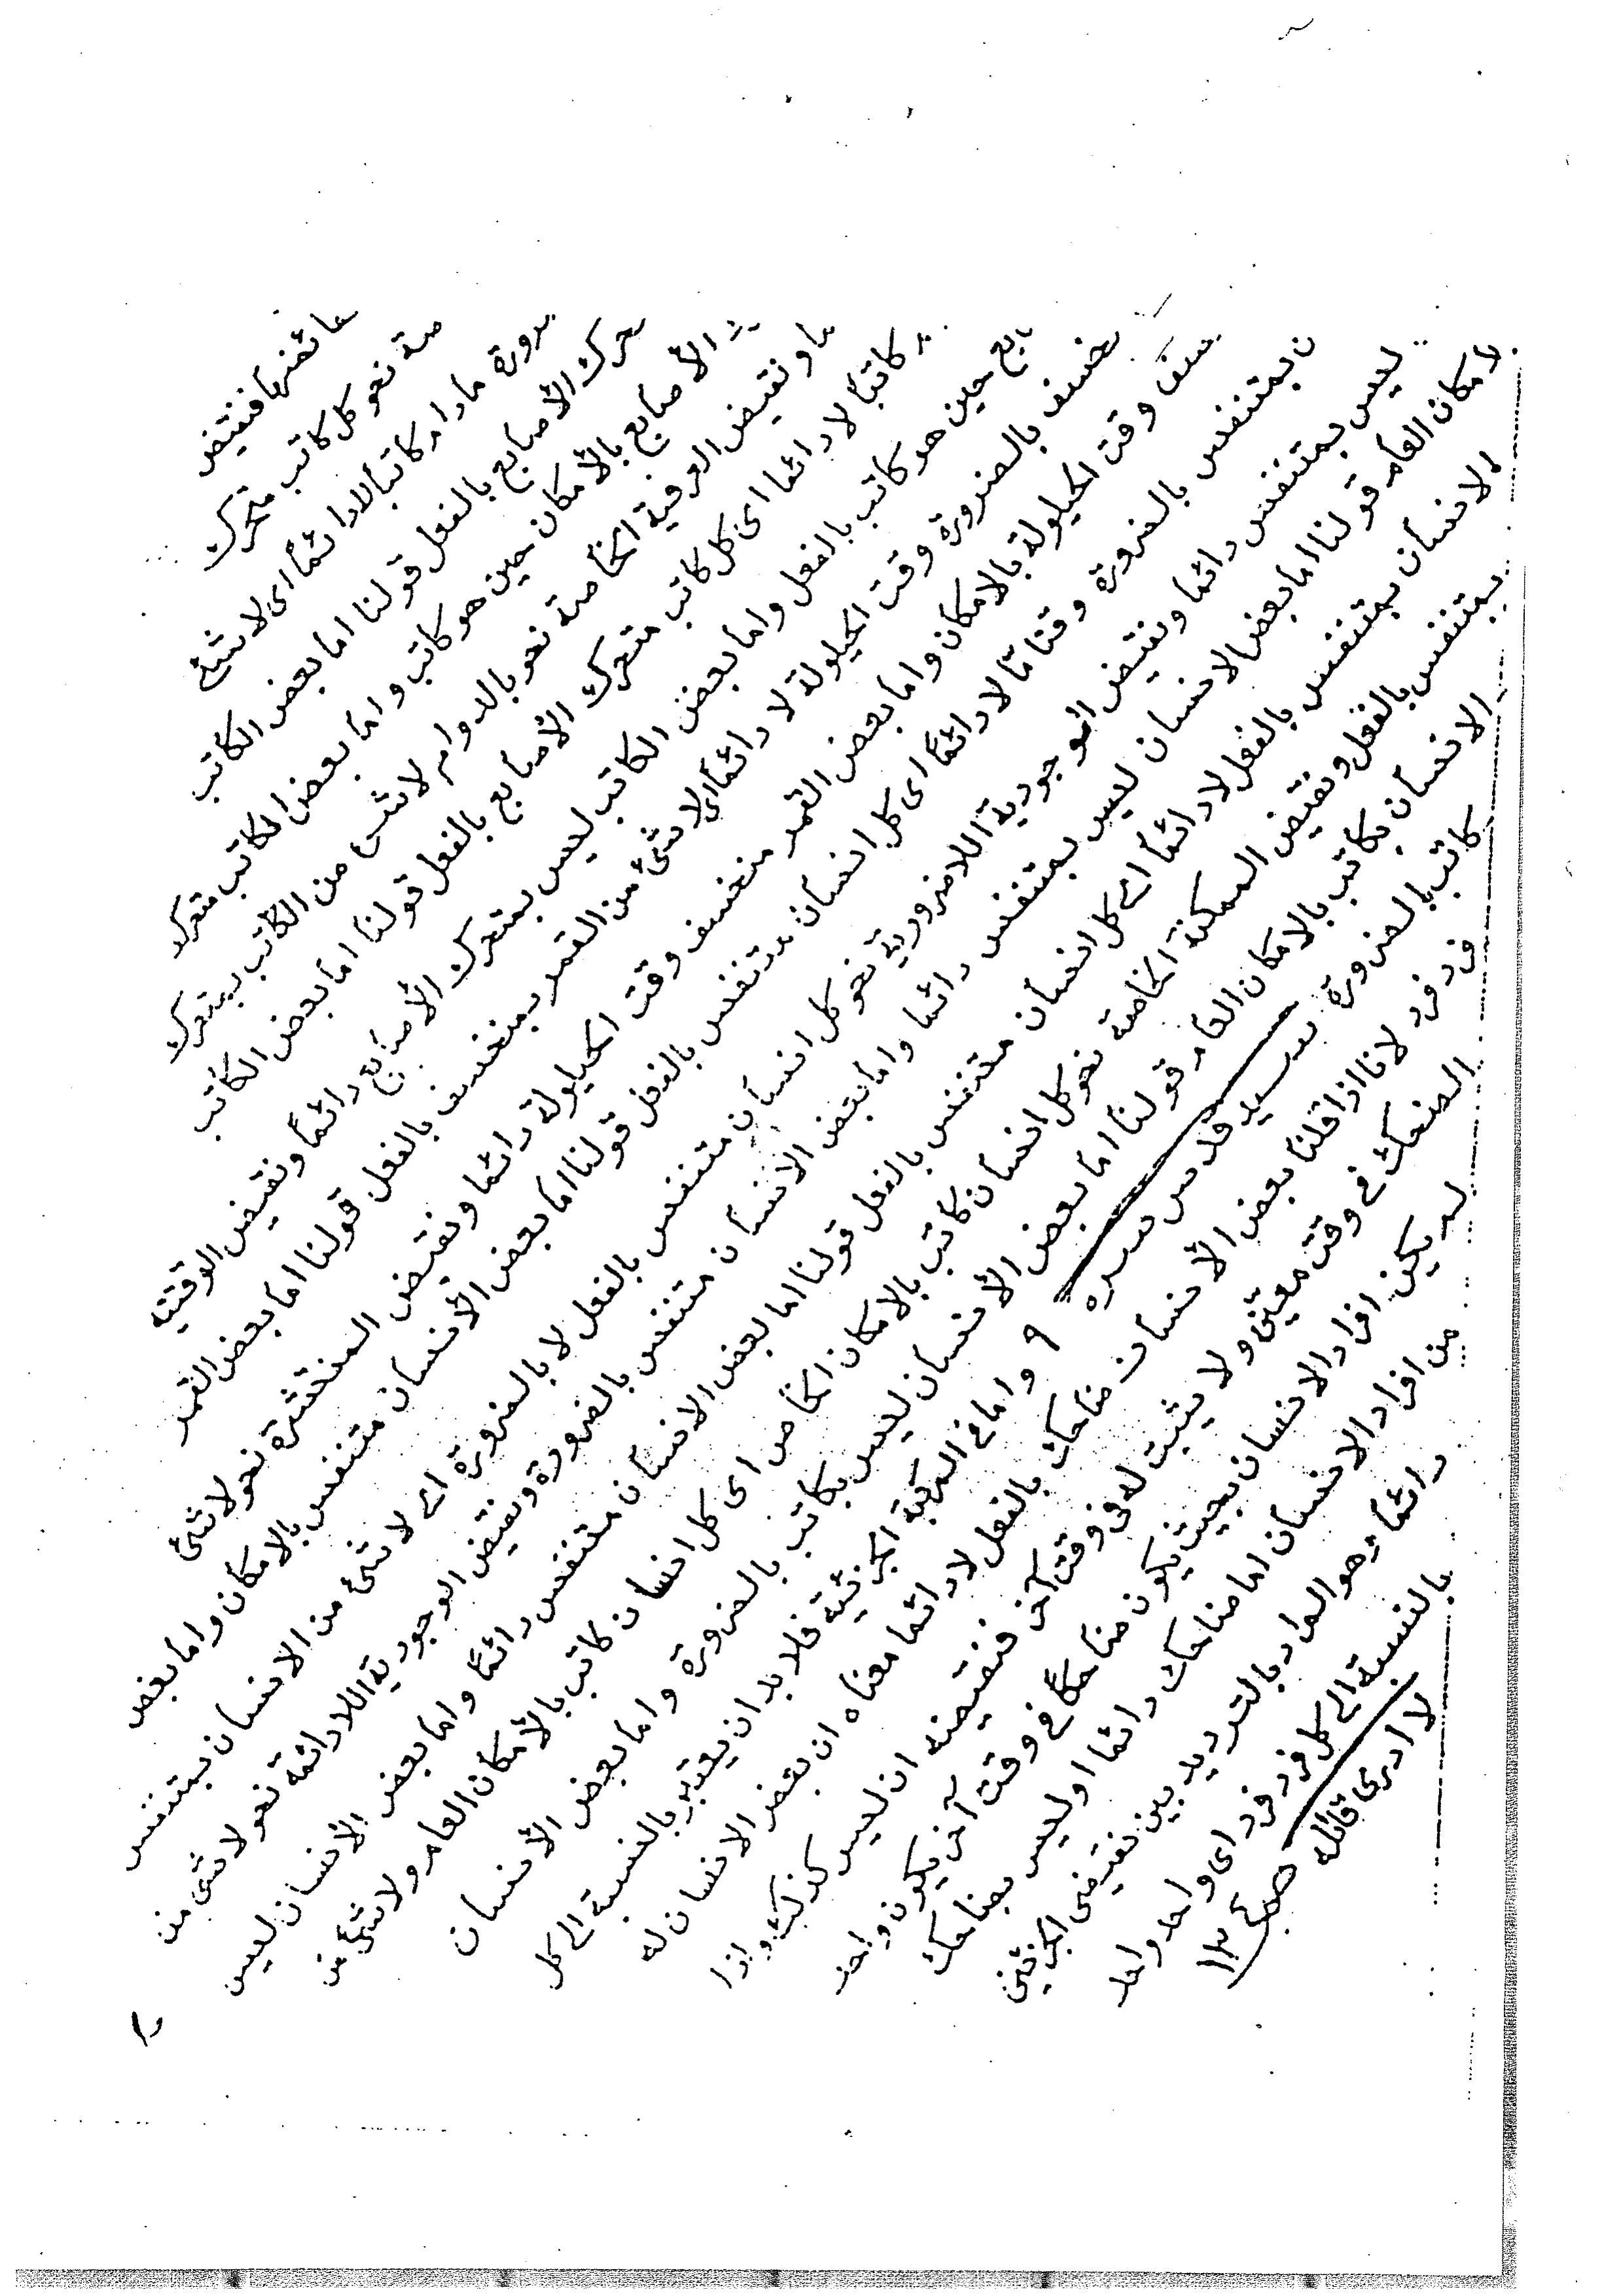 فنقيض
صة نحو كل كاتب متحرك
مادام كاتبا لا دائمًا اى لا شئ
الأصابع بالفعل قولنا اما بعض الكاتب
الأصابع بالأمكان حين هو كاتب و اما بعض الكاتب متحرك
ما ونقيض العرفية الخاصة نحو بالدوام لا شئ من الكاتب بمتحرك
كاتبًا لا دائما اى كل كاتب متحرك الأصابع بالفعل قولنا اما بعض الكاتب
ابع حين هو كاتب بالفعل واما بعض الكاتب ليس بمتحرك الأصابع دائمًا ونقيض الوقتية
نخسف بالضرورة وقت الحيلولة لا دائمًا اى لا شئ من القمر بمنخسف بالفعل قولنا اما بعض القمر
سف وقت الحيلولة بالامكان واما بعض القمر منخسف وقت الحيلولة دائما ونقيض المنتشرة نحو لا شئ
ن بمتنفس بالضرورة وقتا مّا لا دائمًا اى كل انسان متنفس بالفعل قولنا اما بعض الأنسان متنفس بالامكان واما بعض
ليس بمتنفس دائما ونقيض الوجودية اللاضرورية نحو كل انسان متنفس بالفعل لا بالضرورة اى لا شئ من الانسان بمتنفس
لامكان العام قولنا اما بعض الانسان ليس بمتنفس دائما واما بعض الانسان متنفس بالضرورة ونقيض الوجودية اللادائمة نحو لا شئ من
الانسان بمتنفس بالفعل لا دائمًا اى كل انسان متنفس بالفعل قولنا اما بعض الانسان متنفس دائمًا واما بعض الأنسان ليس
بمتنفس بالفعل ونقيض الممكنة الخاصة نحو كل انسان كاتب بالامكان الخاص اى كل انسان كاتب بالأمكان العام ولا شئ من
الانسان بكاتب بالامكان العام قولنا اما بعض الأنسان ليس بكاتب بالضرورة واما بعض الأنسان
كاتب بالضرورة سيد قدس سره ٩ واما فى المركبة الجزئية فلا بد ان يعتبر بالنسبة الى كل
فرد فرد لانا اذا قلنا بعض الأنسان ضاحك بالفعل لا دائما معناه ان بعض الانسان له
الضحك فى وقت معين ولا يثبت له فى وقت آخر فنقيضه ان ليس كذلك واذا
لم يكن افراد الانسان بحيث يكون ضاحكًا فى وقت آخر يكون واحد
من افراد الانسان اما ضاحك دائما او ليس بضاحك
دائمًا هو المراد بالترديد بين نقيضى الجزئين
بالنسبة الى كل فرد فرد اى واحد واحد
لا ادرى قائله ١٣